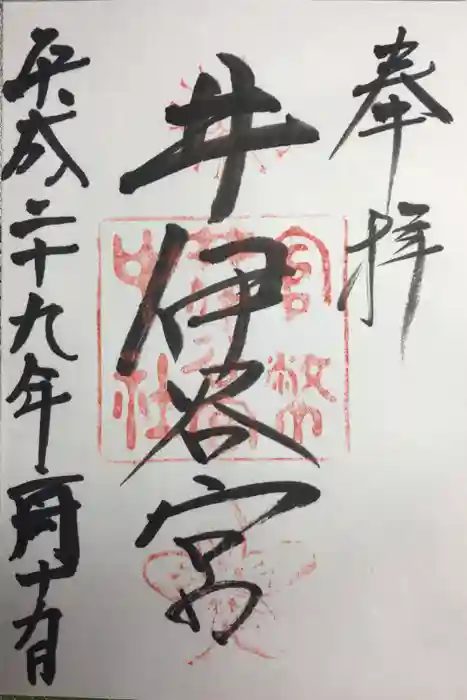 奉拝
井伊谷宮
平成二十九年二月十九日